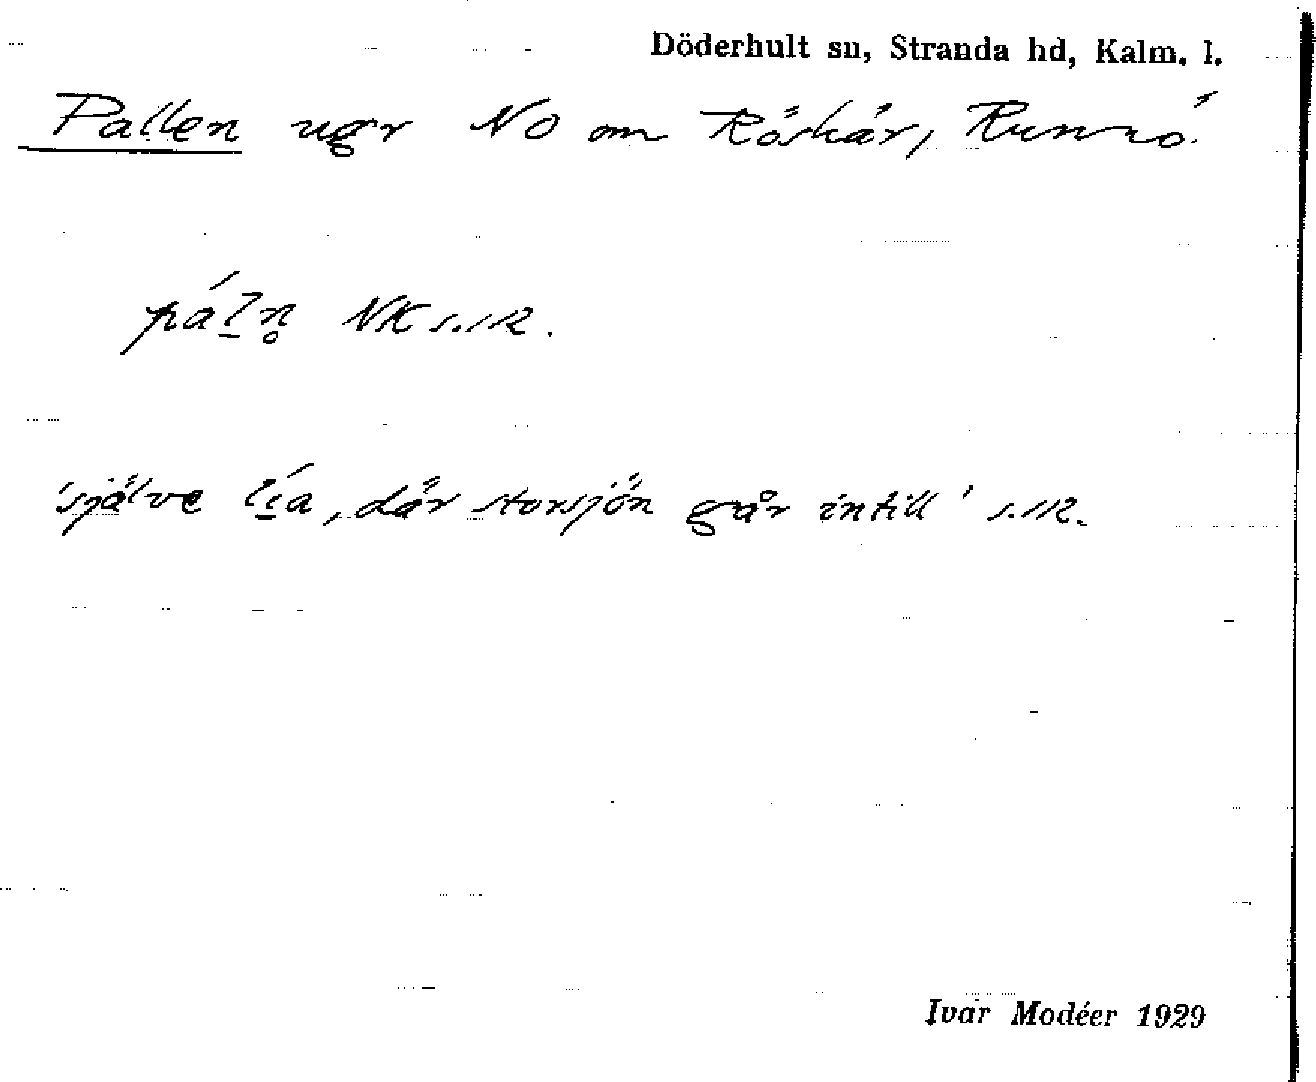 Döderhult sn, Stranda hd, Kalm. l.
Pallen ugr NO om Röskär, Runnö.
pál̲n̥ NK s. SR.
'själve lí̲a, där storsjön går intill' s. SR.
Ivar Modéer 1929